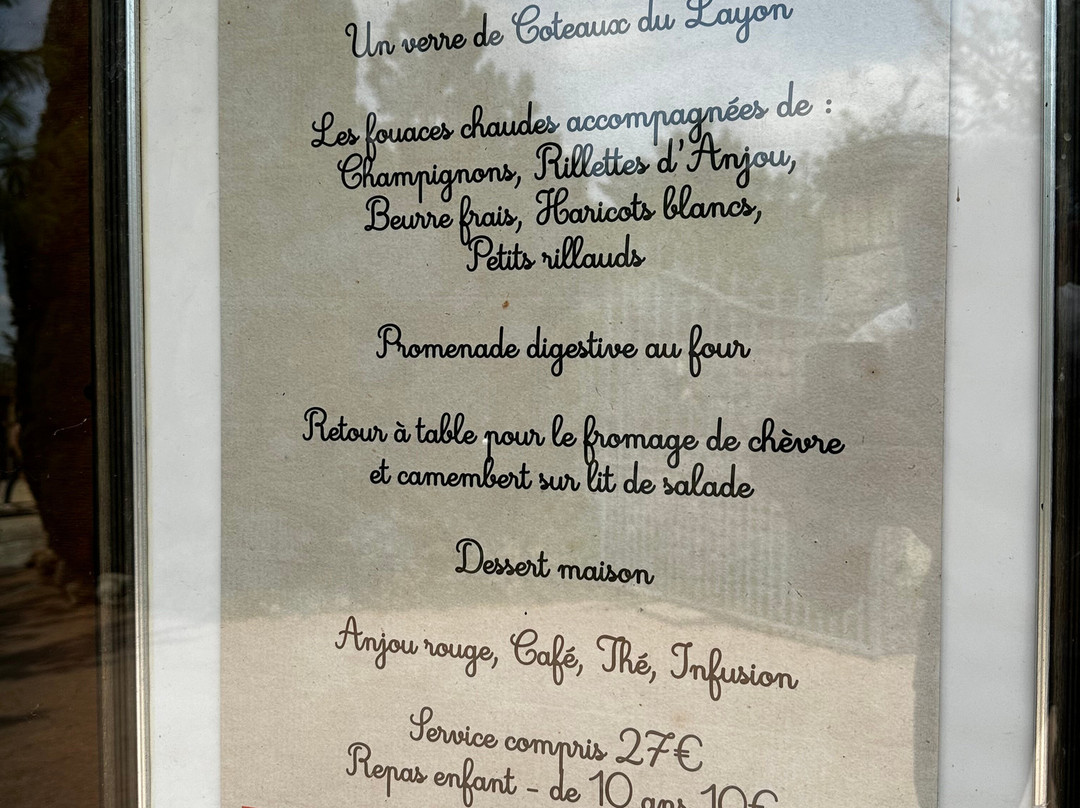 Un verre de Coteaux du Layon
Les fouaces chaudes accompagnées de :
Champignons, Rillettes d'Anjou,
Beurre frais, Haricots blancs,
Petits rillauds
Promenade digestive au four
Retour à table pour le fromage de chèvre
et camembert sur lit de salade
Dessert maison
Anjou rouge, Café, Thé, Infusion
Service compris 27€
Repas enfant - de 10 ans 10€